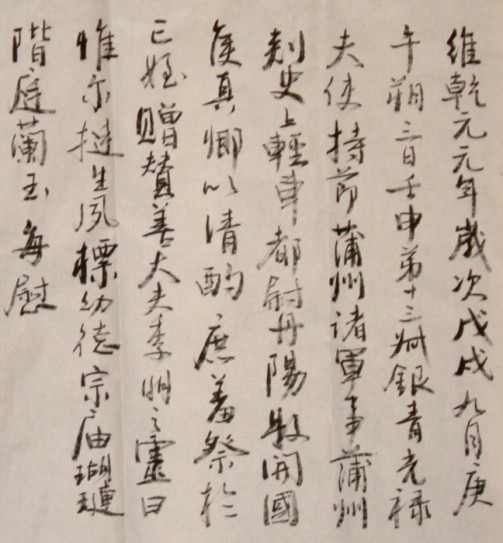 維乾元元年歲次戊戌九月庚
午朔三日壬申第十三叔銀青光祿
夫使持節蒲州諸軍事蒲州
刺史上輕車都尉丹陽縣開國
侯真卿以清酌庶羞祭於
亡姪贈贊善大夫季明之靈曰
惟尔挺生夙標幼德宗庙瑚璉
階庭蘭玉每慰